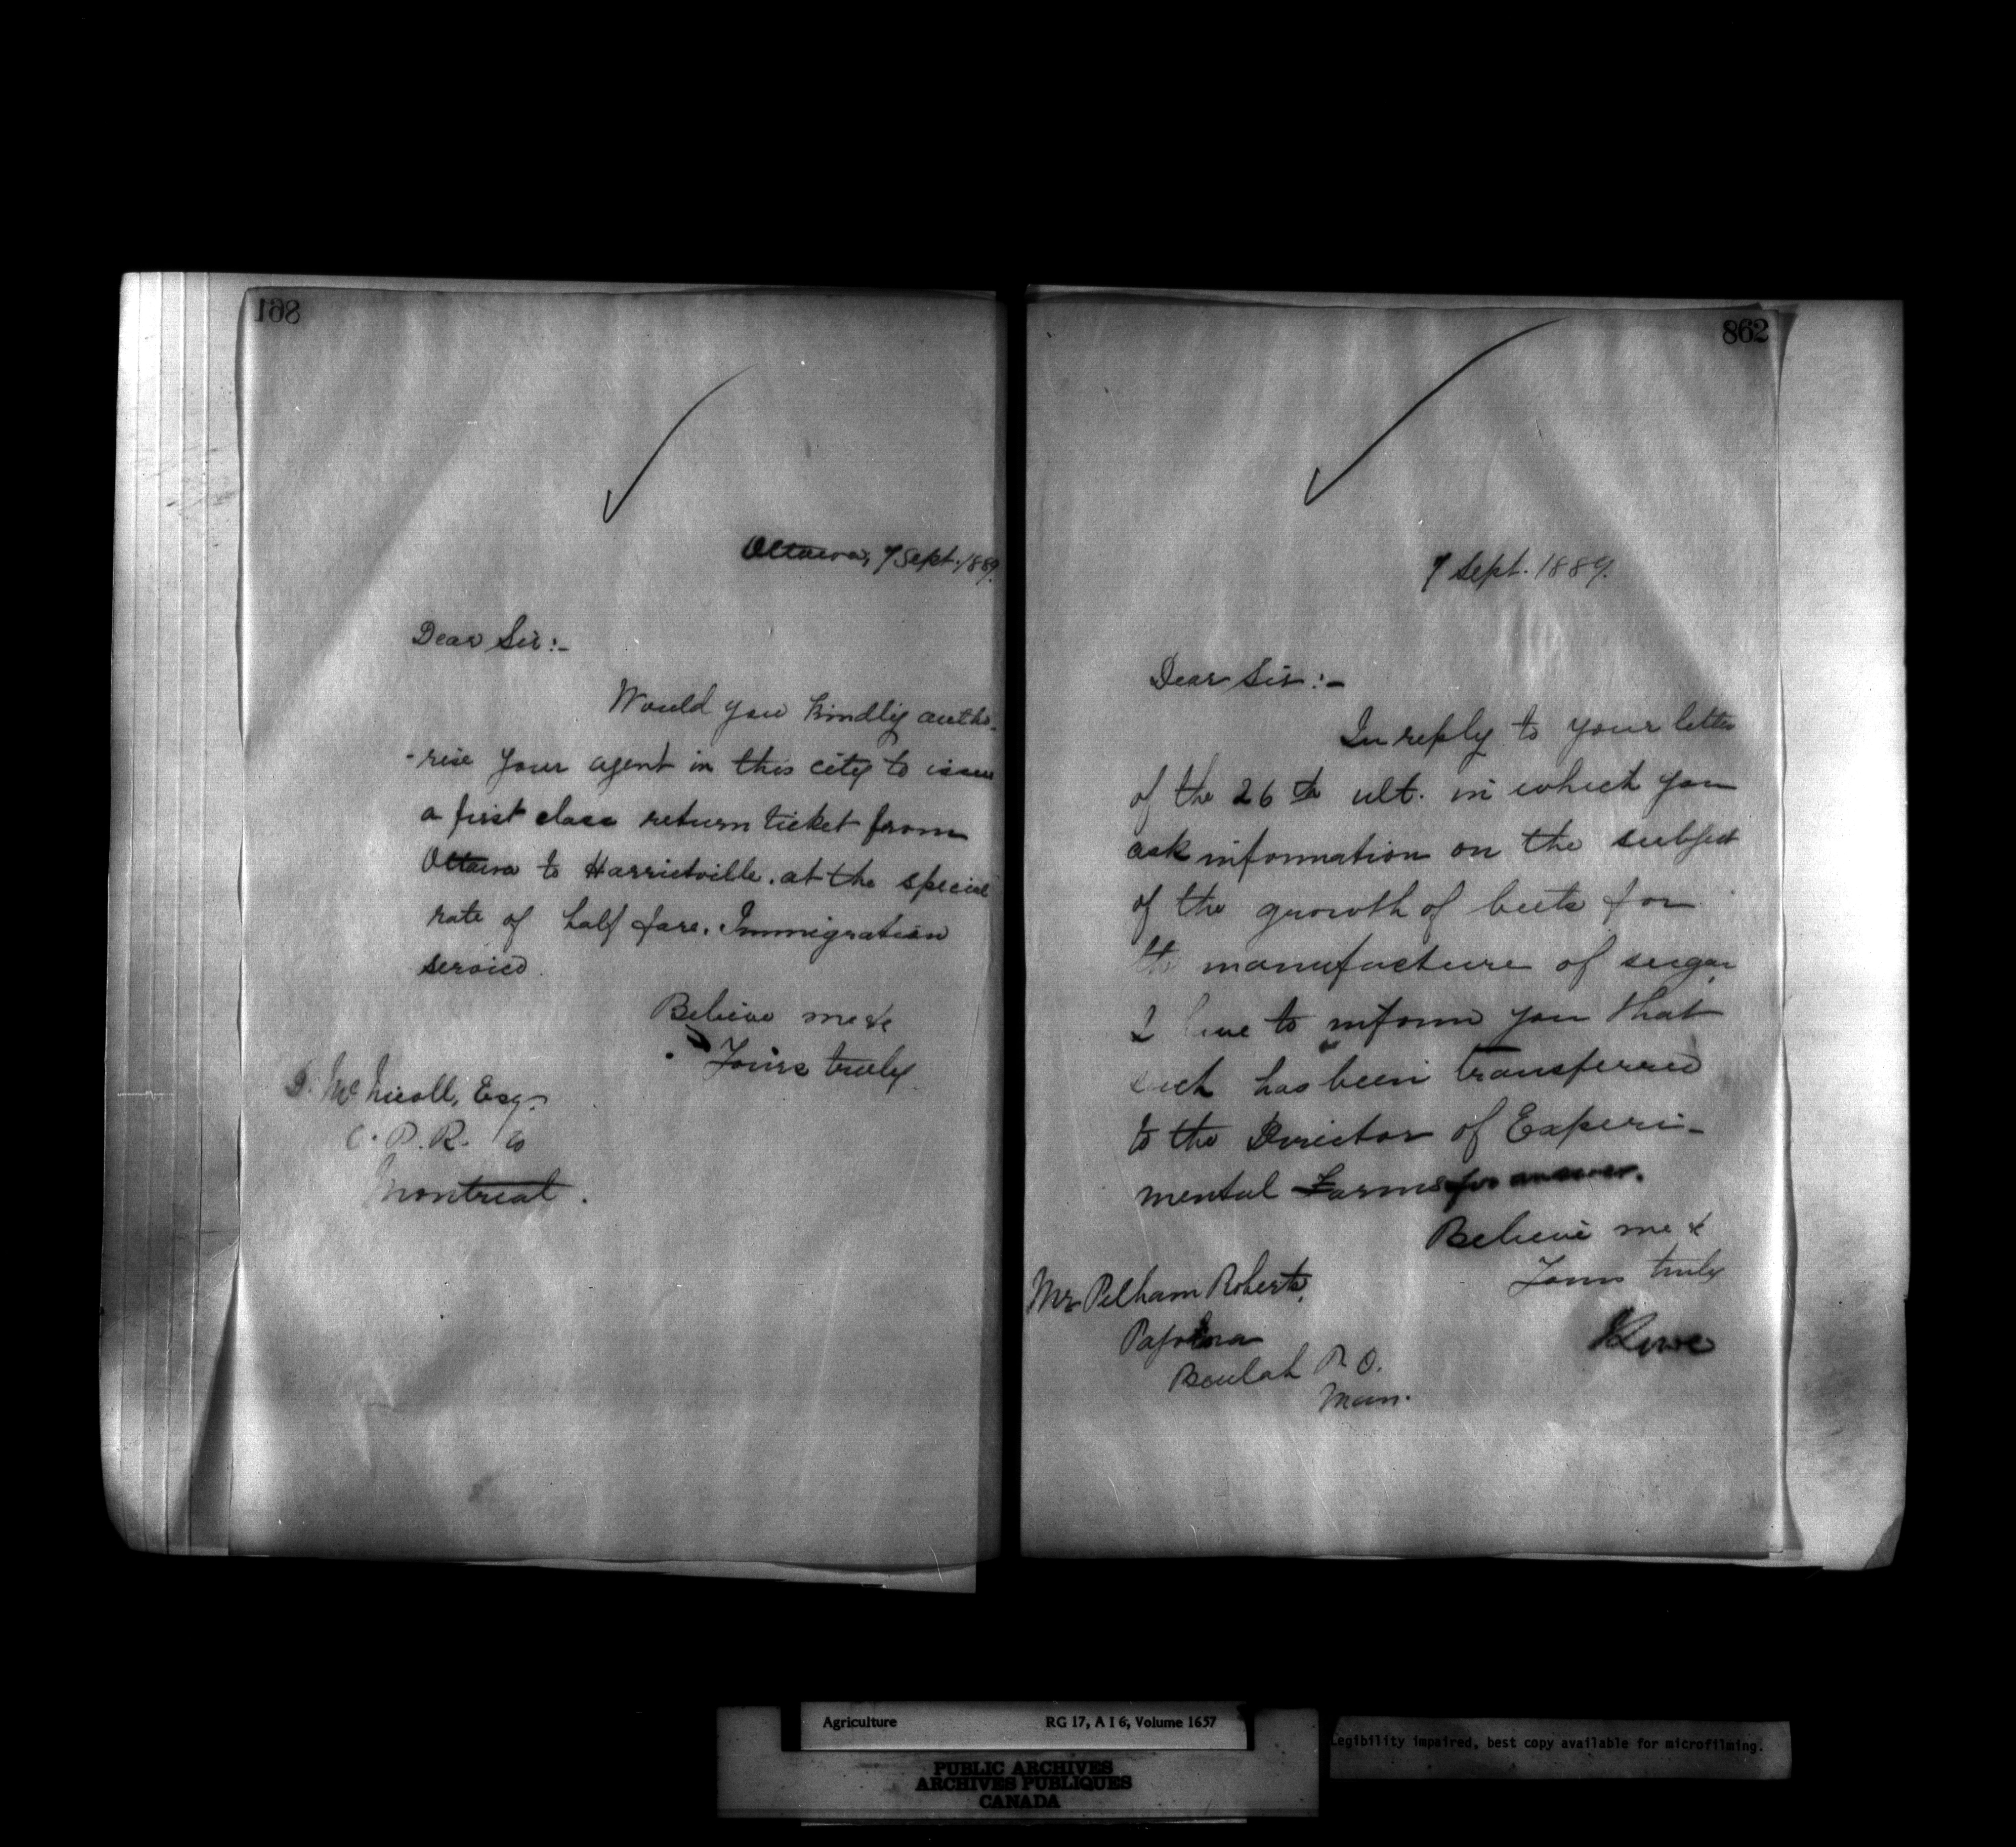 861
Ottawa, 7 Sept. 1889.
Dear Sir:-
Would you kindly autho-
-rise your agent in this city to issue
a first class return ticket from
Ottawa to Harrietville. at the special
rate of half fare. Immigration
service.
Believe me &c
Yours truly
D. McNicoll, Esq.
C. P. R. Co
Montreal.
862
7 Sept. 1889.
Dear Sir:-
In reply to your letter
of the 26th ult. in which you
ask information on the subject
of the growth of beets for
the manufacture of sugar
I have to inform you that
such has been transferred
to the Director of Experi-
mental Farms for answer.
Believe me &
Yours truly
Lowe
Mr Pelham Roberts,
Beulah P. O.
Man.
Agriculture RG 17, A I 6, Volume 1657
PUBLIC ARCHIVES
ARCHIVES PUBLIQUES
CANADA
Legibility impaired, best copy available for microfilming.